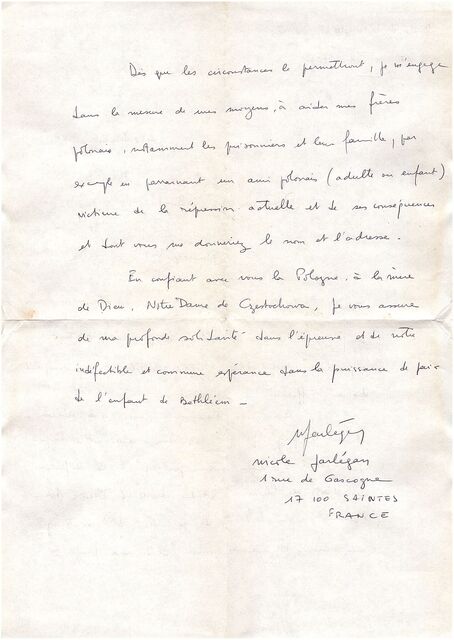 Dès que les circonstances le permettront, je m'engage
dans la mesure de mes moyens, à aider mes frères
polonais, notamment les prisonniers et leur famille, par
exemple en parrainant un ami polonais (adulte ou enfant)
victime de la répression actuelle et de ses conséquences
et dont vous me donneriez le nom et l'adresse.
En confiant avec vous la Pologne, à la mère
de Dieu, Notre Dame de Częstochowa, je vous assure
de ma profonde solidarité dans l'épreuve et de notre
indéfectible et commune espérance dans la puissance de paix
de l'enfant de Bethléem -
Nicole
1 rue de Gascogne
17 100 SAINTES
FRANCE